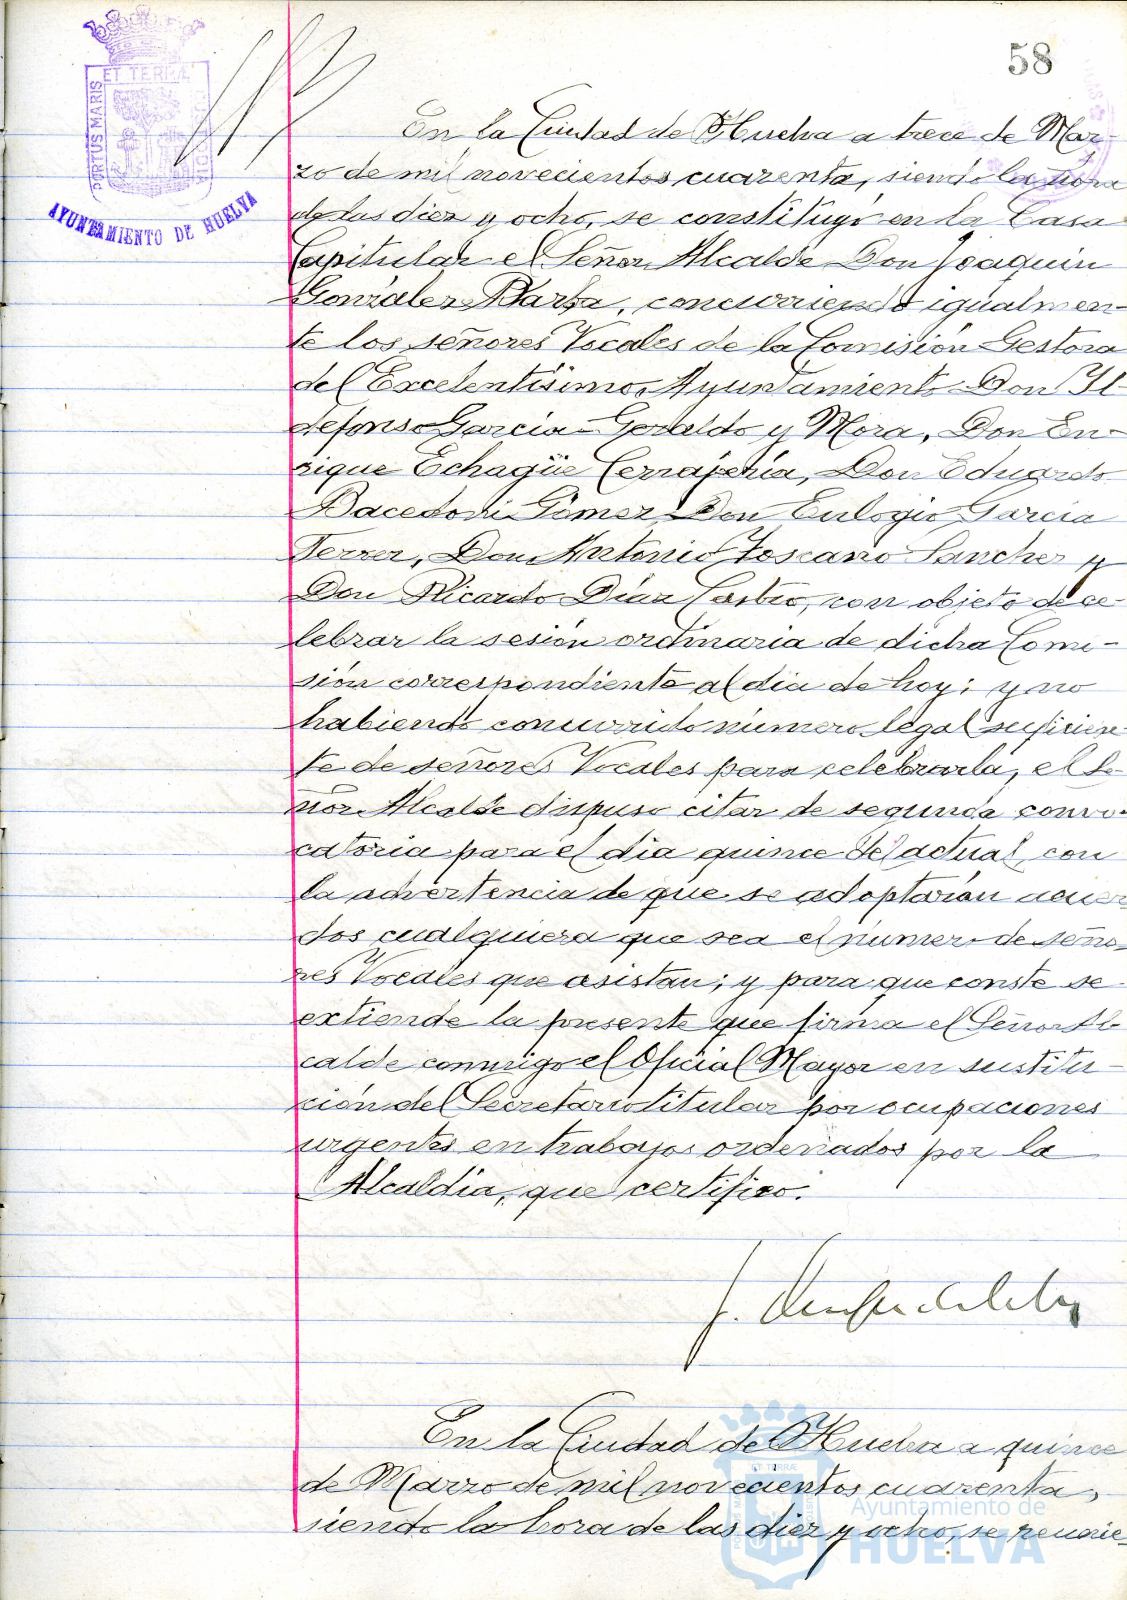 58
PORTUS MARIS
ET TERRÆ
AYUNTAMIENTO DE HUELVA
En la Ciudad de Huelva a trece de Mar-
zo de mil novecientos cuarenta, siendo la hora
de las diez y ocho, se constituyó en la Casa
Capitular el Señor Alcalde Don Joaquin
González Barba, concurriendo igualmen-
te los señores Vocales de la Comisión Gestora
del Excelentísimo Ayuntamiento Don Il-
defonso Garcia-Geraldo y Mora, Don En-
rique Echagüe Cerrajería, Don Eduardo
Macedoni Gómez, Don Eulogio Garcia
Ferrer, Don Antonio Toscano Sanchez y
Don Ricardo Díaz Castro, con objeto de ce-
lebrar la sesión ordinaria de dicha Comi-
sión correspondiente al dia de hoy; y no
habiendo concurrido número legal suficien-
te de señores Vocales para celebrarla, el Se-
ñor Alcalde dispuso citar de segunda convo-
catoria para el día quince del actual, con
la advertencia de que se adoptarán acuer-
dos cualquiera que sea el número de seño-
res Vocales que asistan; y para que conste se
extiende la presente que firma el Señor Al-
calde conmigo el Oficial Mayor en sustitu-
ción del Secretario titular por ocupaciones
urgentes en trabajos ordenados por la
Alcaldía, que certifico.
En la Ciudad de Huelva a quince
de Marzo de mil novecientos cuarenta,
siendo la hora de las diez y ocho, se reunie-
Ayuntamiento de
HUELVA